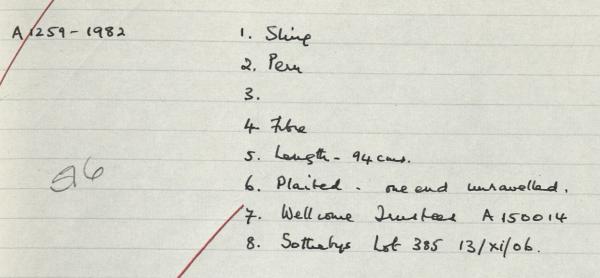 A 1259-1982
1. Sling
2. Peru
3.
4. Fibre
5. Length - 94 cms.
56
6. Plaited - one end unravelled.
7. Wellcome Trustees A 150014
8. Sothebys Lot 385 13/xi/06.